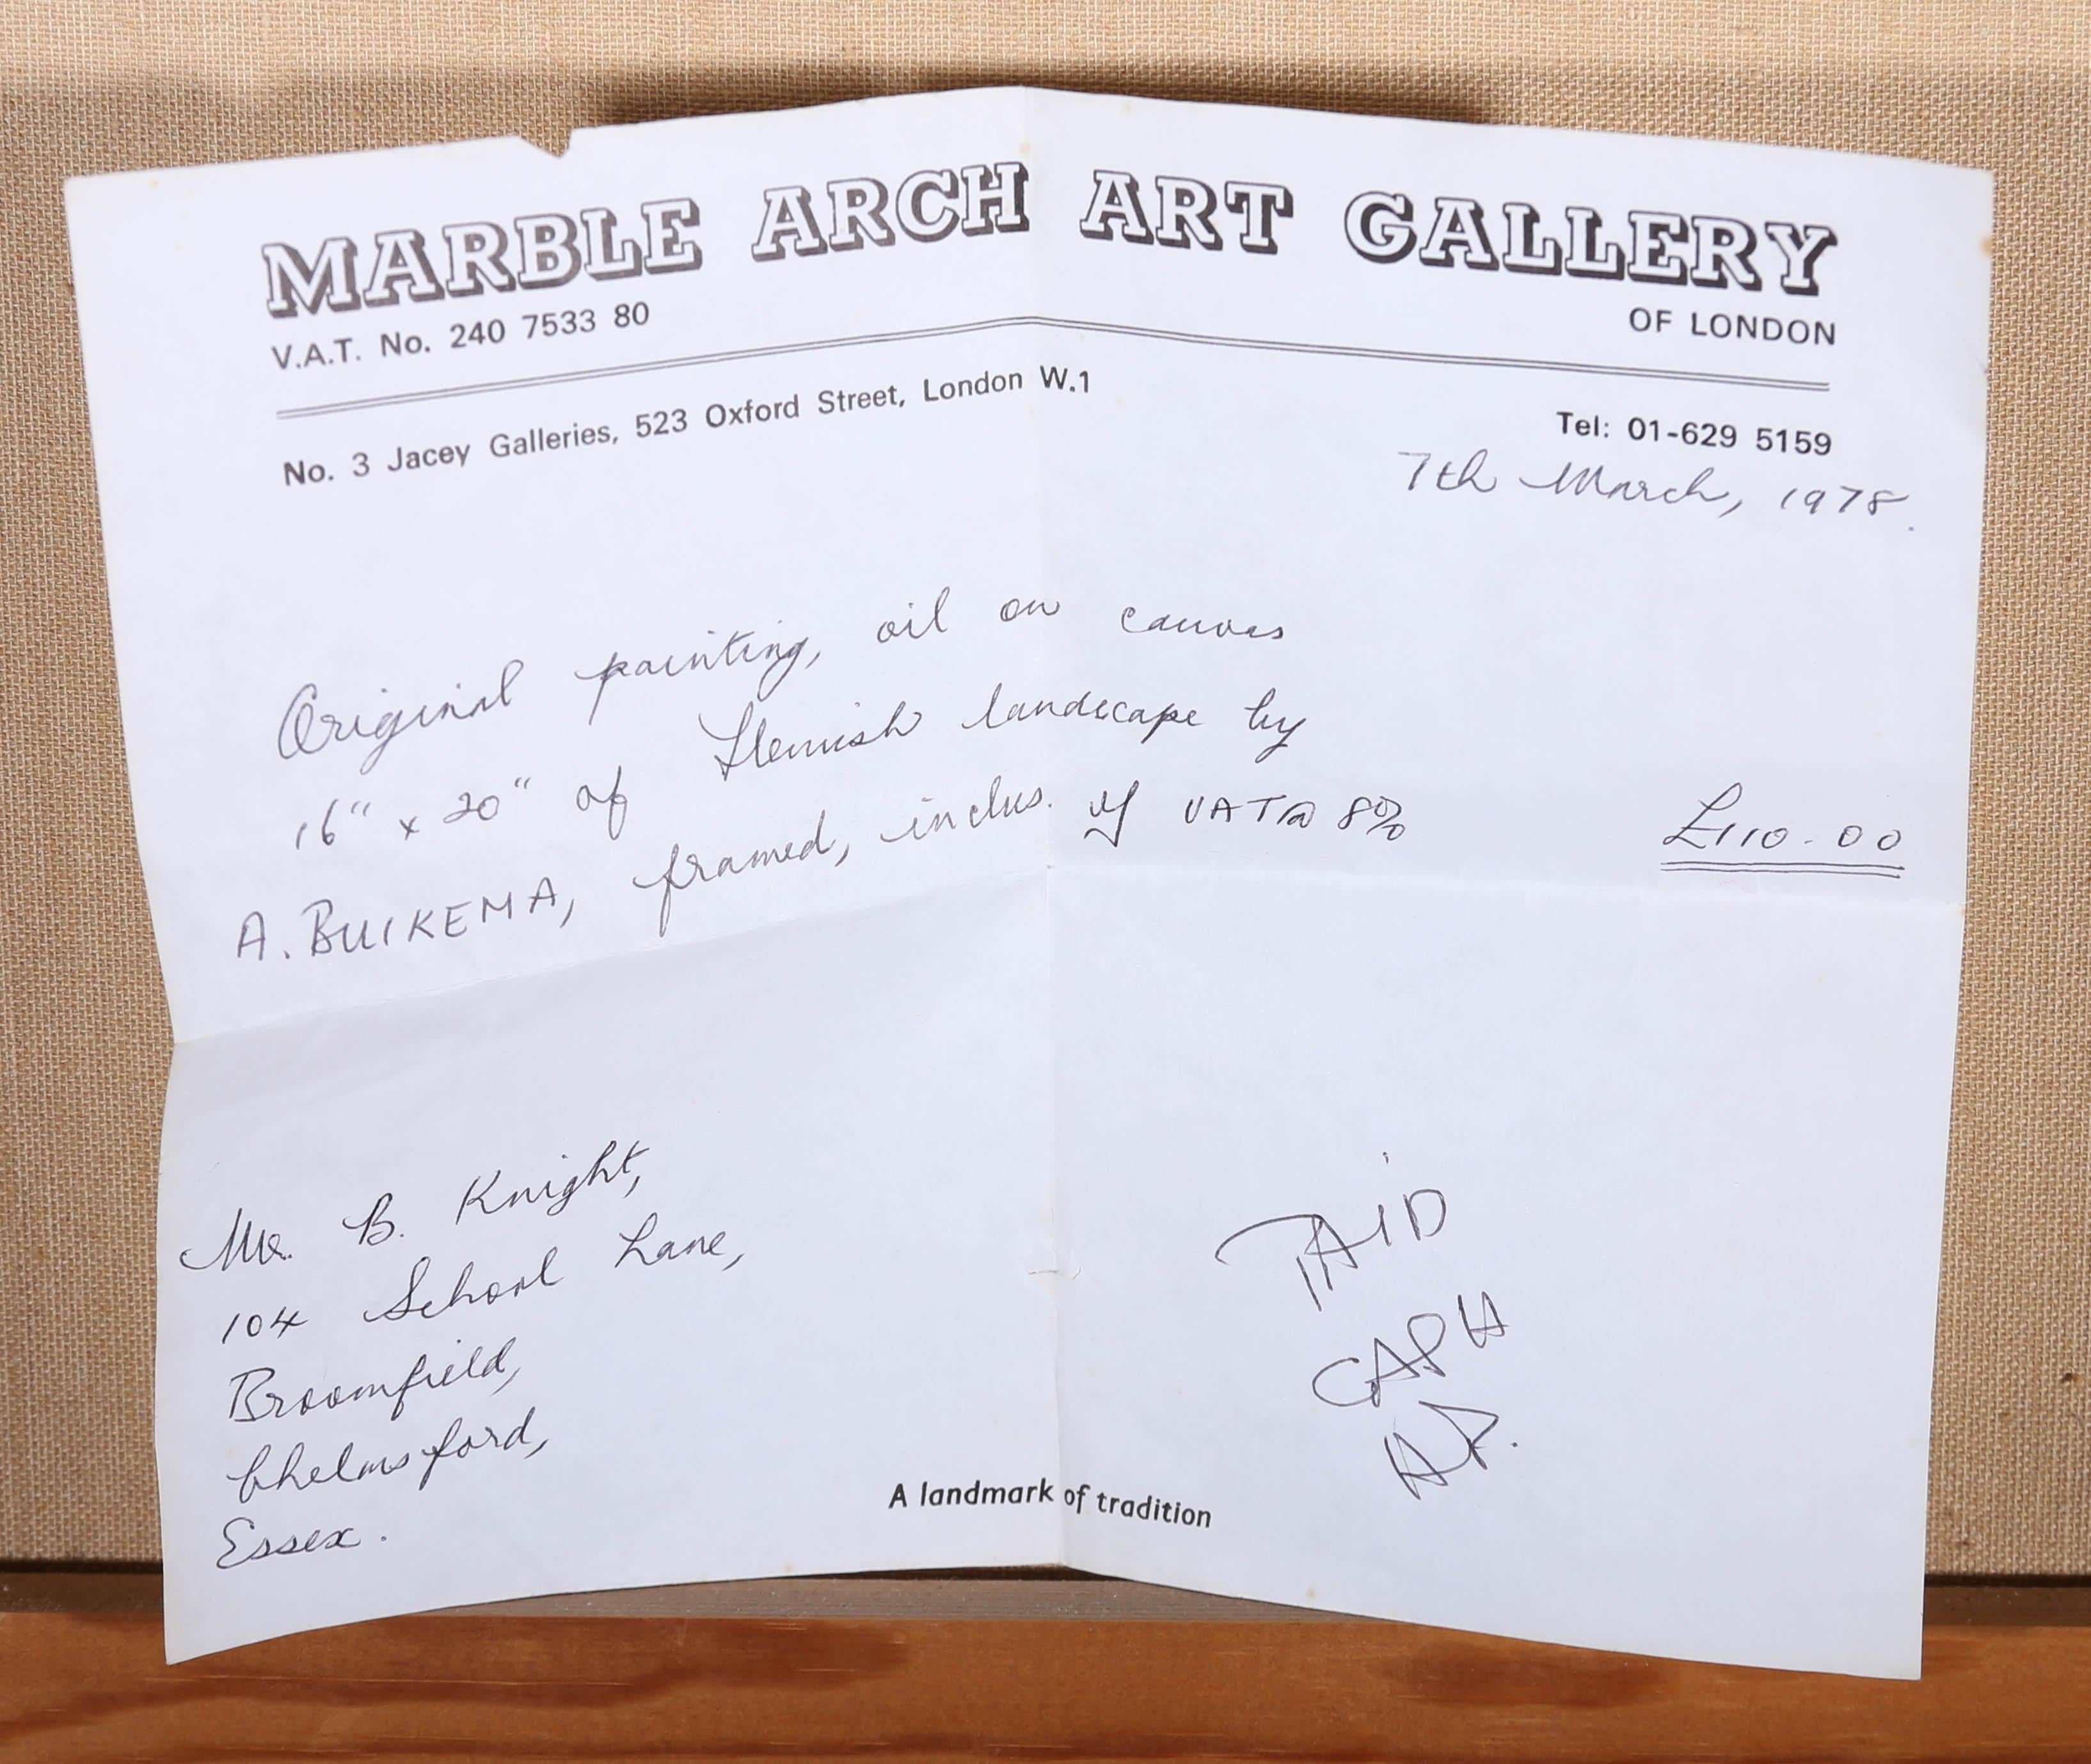 MARBLE ARCH ART GALLERY
OF LONDON
V.A.T. No. 240 7533 80
No. 3 Jacey Galleries, 523 Oxford Street, London W.1
Tel: 01-629 5159
7th March, 1978.
Original painting, oil on canvas
16" x 20" of Flemish landscape by
A. BUIKEMA, framed, inclus. of VAT @ 8%
£110.00
Mr. B. Knight,
104 School Lane,
Broomfield,
Chelmsford,
Essex.
PAID
CASH
A landmark of tradition